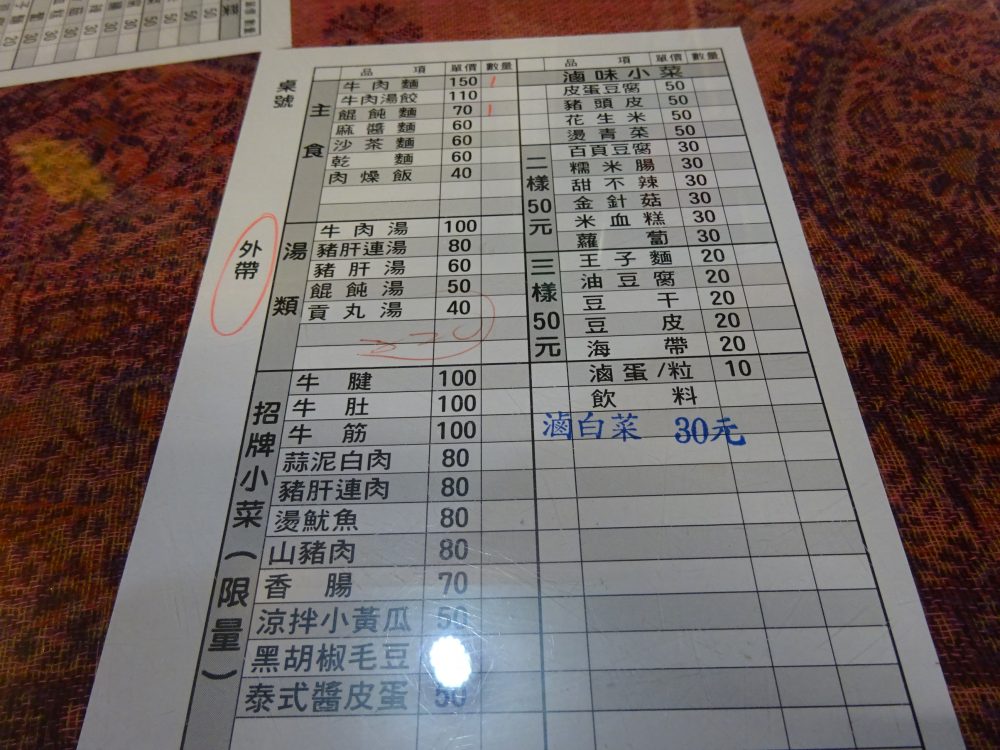 桌號
外帶
品項 單價 數量
主食
牛肉麵 150 1
牛肉湯餃 110
餛飩麵 70 1
麻醬麵 60
沙茶麵 60
乾麵 60
肉燥飯 40
湯類
牛肉湯 100
豬肝連湯 80
豬肝湯 60
餛飩湯 50
貢丸湯 40
220
招牌小菜(限量)
牛腱 100
牛肚 100
牛筋 100
蒜泥白肉 80
豬肝連肉 80
燙魷魚 80
山豬肉 80
香腸 70
涼拌小黃瓜 50
黑胡椒毛豆
泰式醬皮蛋 50
品項 單價 數量
滷味小菜
皮蛋豆腐 50
豬頭皮 50
花生米 50
燙青菜 50
二樣50元
百頁豆腐 30
糯米腸 30
甜不辣 30
金針菇 30
米血糕 30
蘿蔔 30
三樣50元
王子麵 20
油豆腐 20
豆干 20
豆皮 20
海帶 20
滷蛋/粒 10
飲料
滷白菜 30元